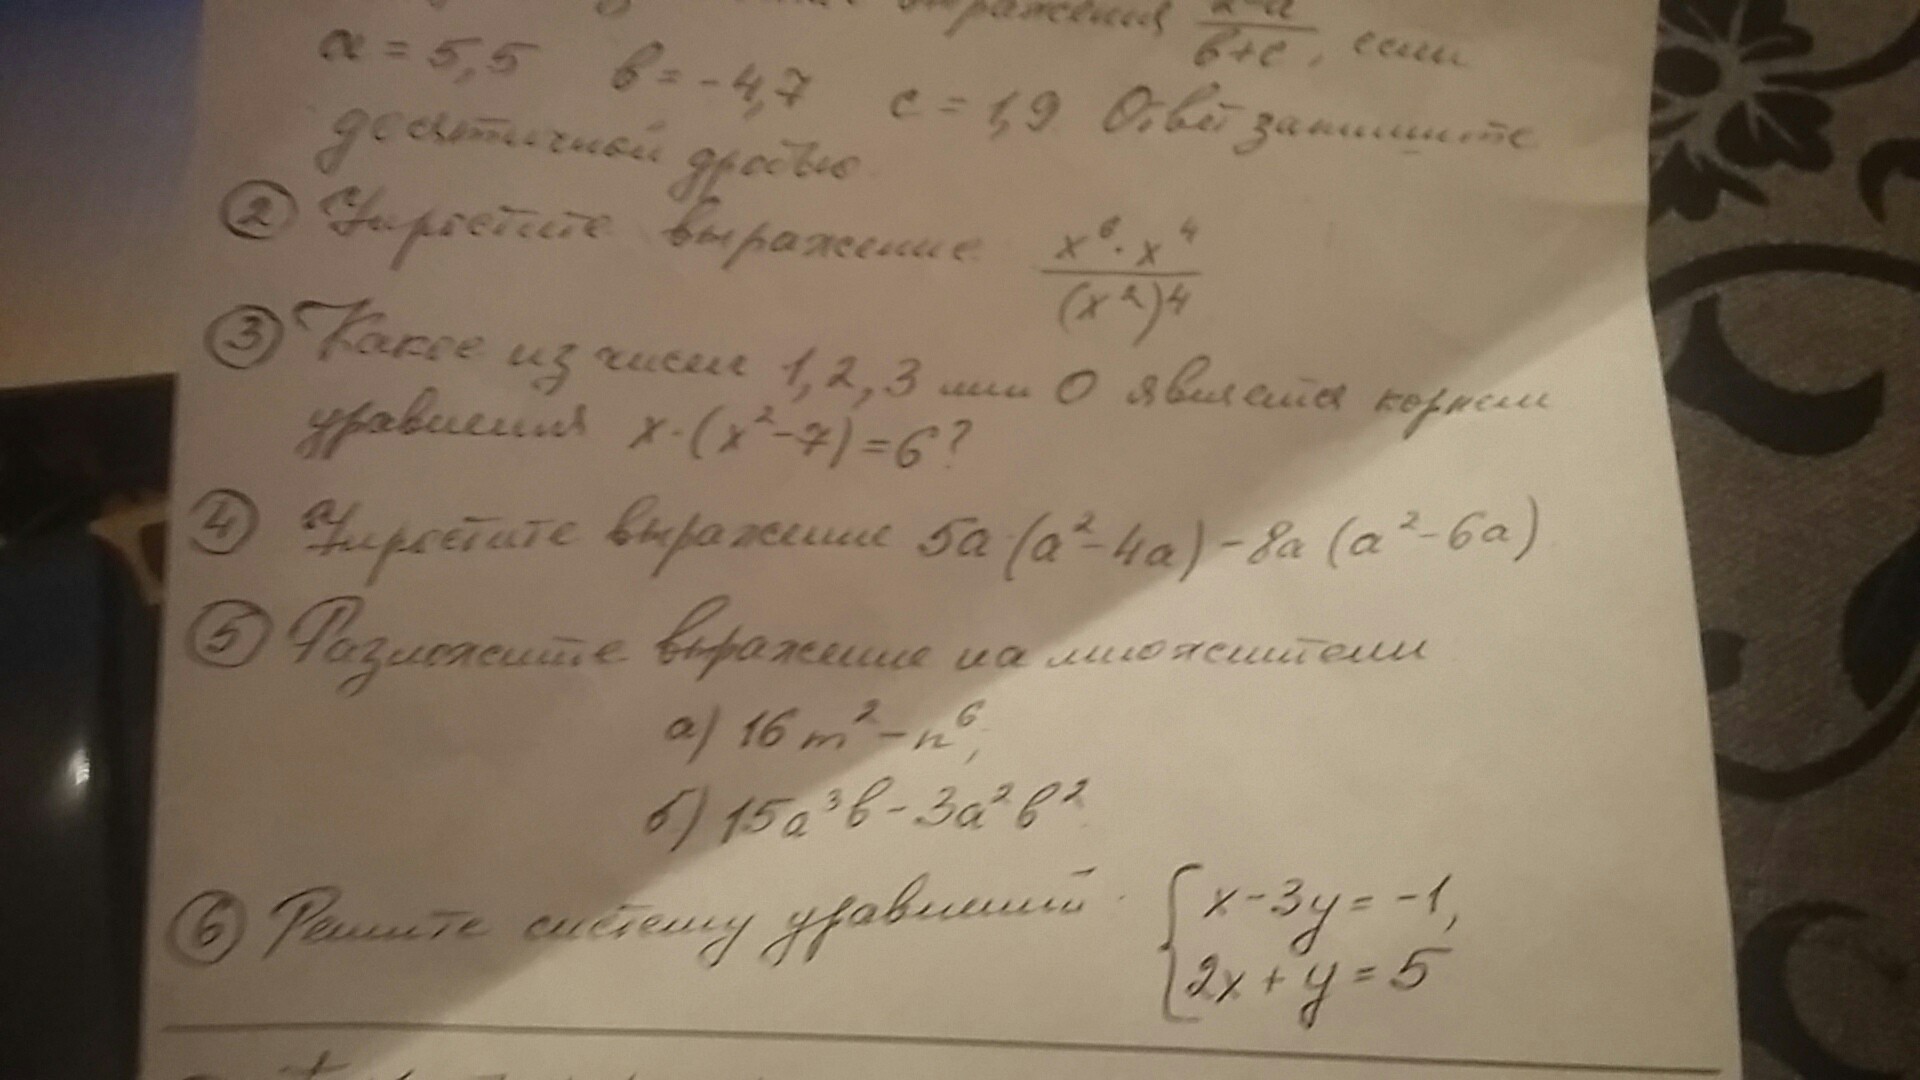 выражения 2-a/b+c, если
a = 5,5 b = -4,7 c = 1,9 Ответ запишите
десятичной дробью.
② Упростите выражение x⁶·x⁴/(x²)⁴
③ Какое из чисел 1, 2, 3 или 0 является корнем
уравнения x·(x²-7)=6?
④ Упростите выражение 5a·(a²-4a)-8a(a²-6a)
⑤ Разложите выражение на множители
а) 16m²-n⁶;
б) 15a³b-3a²b²
⑥ Решите систему уравнений { x-3y=-1,
2x+y=5